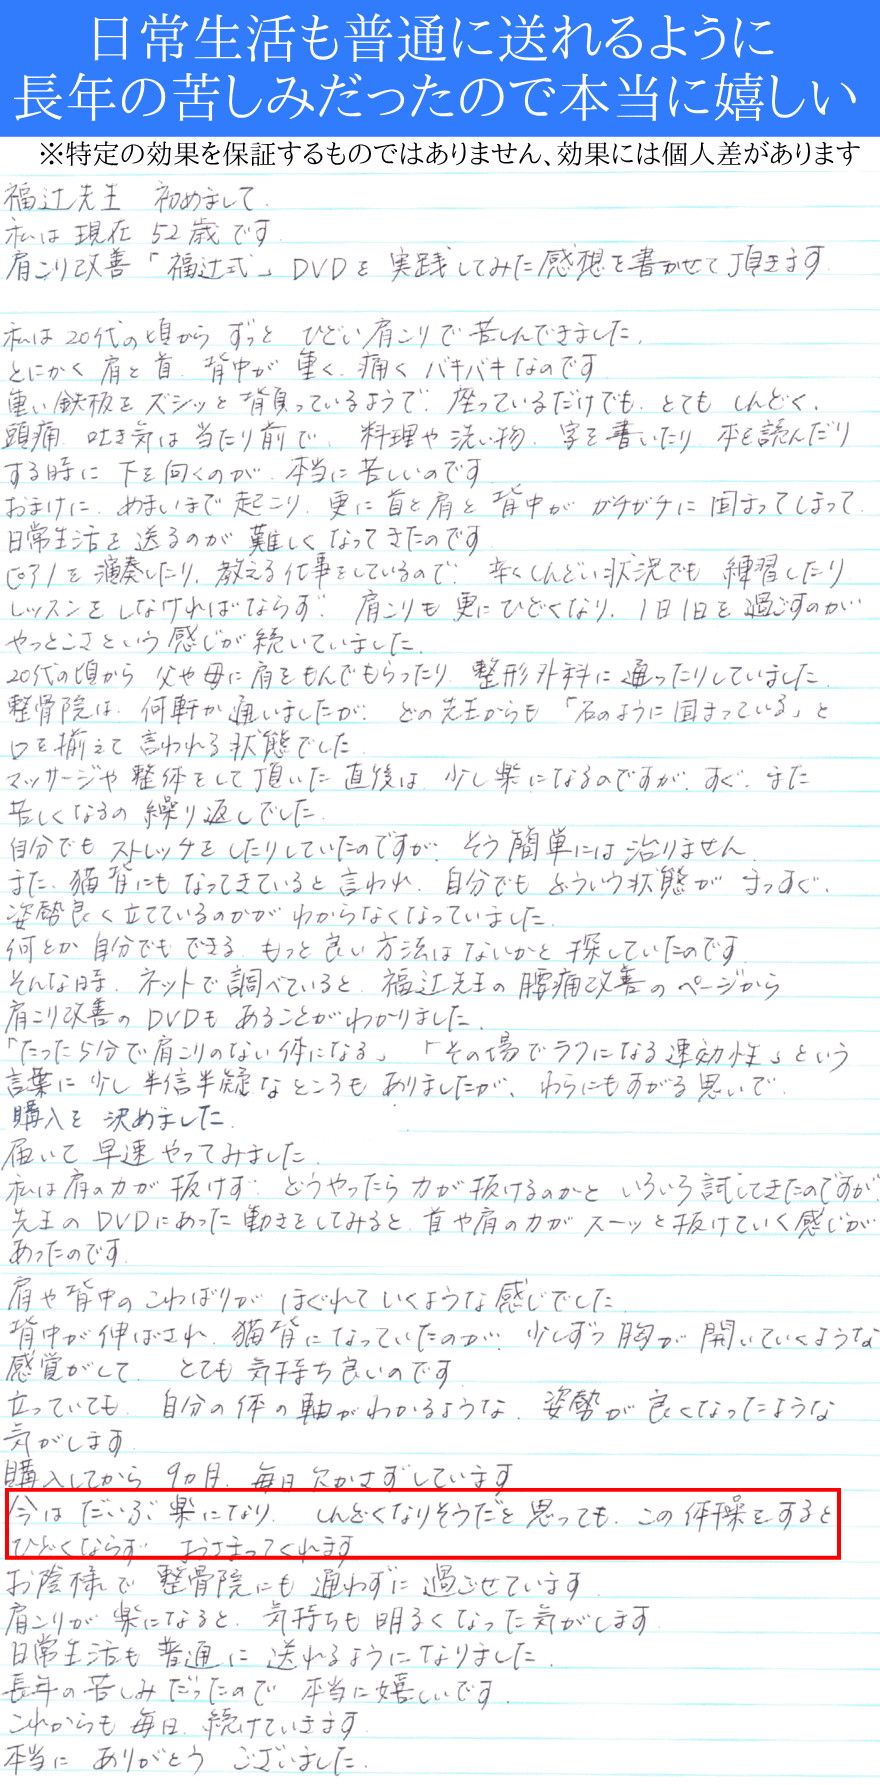 日常生活も普通に送れるように
長年の苦しみだったので本当に嬉しい
※特定の効果を保証するものではありません、効果には個人差があります
福辻先生 初めまして.
私は 現在 52歳です.
肩こり改善「福辻式」DVDを実践してみた感想を書かせて頂きます.
私は20代の頃から ずっと ひどい肩こりで苦しんできました.
とにかく肩と首、背中が 重く、痛く バキバキなのです.
重い鉄板を ズシッと 背負っているようで、座っているだけでも、とても しんどく、
頭痛、吐き気は 当たり前で、料理や洗い物、字を書いたり 本を読んだり
する時に 下を向くのが、本当に苦しいのです.
おまけに、めまいまで起こり、更に首と肩と 背中が ガチガチに 固まってしまって、
日常生活を 送るのが 難しく なってきたのです.
ピアノを演奏したり、教える仕事をしているので、辛くしんどい状況でも 練習したり
レッスンを しなければならず、肩こりも 更にひどくなり、1日1日を過ごすのが
やっとこさという感じが続いていました.
20代の頃から 父や母に肩をもんでもらったり、整形外科に通ったりしていました.
整骨院は、何軒か通いましたが、どの先生からも「石のように固まっている」と
口を揃えて 言われる状態でした.
マッサージや 整体をして頂いた 直後は、少し楽になるのですが、すぐ、また
苦しくなるの 繰り返しでした.
自分でも ストレッチを したりしていたのですが、そう簡単には 治りません.
また、猫背にも なってきていると 言われ、自分でも どういう状態が まっすぐ、
姿勢良く立てているのかが わからなくなっていました.
何とか 自分でもできる、もっと良い方法はないかと 探していたのです.
そんな時、ネットで調べていると、福辻先生の腰痛改善のページから
肩こり改善のDVDも あることがわかりました.
「たった5分で肩こりのない体になる」「その場でラクになる速効性」という
言葉に少し 半信半疑なところも ありましたが、わらにもすがる思いで、
購入を 決めました.
届いて 早速やってみました.
私は肩の力が 抜けず、どうやったら力が抜けるのかと いろいろ試してきたのですが、
先生の DVDにあった動きをしてみると、首や肩の力が スーッと抜けていく感じが
あったのです.
肩や背中の こわばりが ほぐれて いくような感じでした.
背中が伸ばされ、猫背になっていたのが、少しずつ 胸が 開いていくような
感覚がして、とても 気持ち良いのです.
立っていても、自分の体の軸がわかるような、姿勢が 良くなったような
気がします.
購入してから 9カ月、毎日欠かさずしています.
今は だいぶ 楽になり、しんどくなりそうだと思っても、この体操をすると
ひどくならず おさまってくれます.
お陰様で 整骨院にも 通わずに 過ごせています.
肩こりが 楽になると、気持ちも 明るくなった気がします.
日常生活も 普通に 送れるようになりました.
長年の苦しみだったので 本当に嬉しいです.
これからも 毎日、続けていきます.
本当に ありがとう ございました.